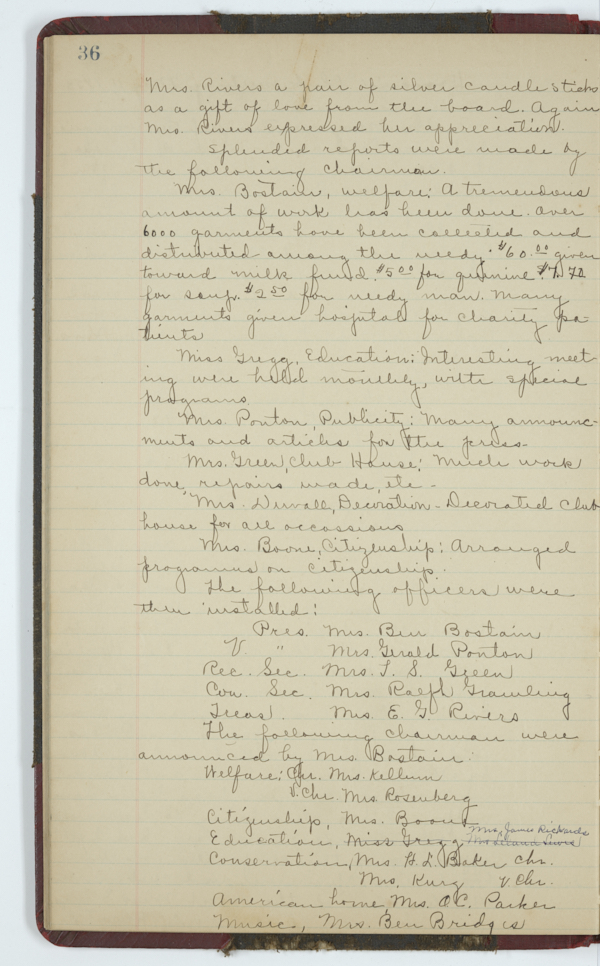 36
Mrs. Rivers a pair of silver candle sticks
as a gift of love from the board. Again
Mrs. Rivers expressed her appreciation.
Splendid reports were made by
the following chairman.
Mrs. Bostain, welfare: A tremendous
amount of work has been done. Over
6000 garments have been collected and
distributed among the needy. $60.00 given
toward milk fund. $5.00 for quinine.
for soup. $2.50 for needy man. Many
garments given hospital for charity pa-
tients
Miss Gregg, Education: Interesting meet-
ing were held monthly, with special
programs.
Mrs. Ponton, Publicity: Many announc-
ments and articles for the press-
Mrs. Green, Club House: Much work
done, repairs made, etc-
Mrs. Duvall, Decoration - Decorated club
house for all occassions
Mrs. Boone, Citizenship: Arranged
programs on citizenship.
The following officers were
then installed:
Pres. Mrs. Ben Bostain
V. " Mrs. Gerald Ponton
Rec. Sec. Mrs. T. S. Green
Cow. Sec. Mrs. Ralph Gramling
Treas. Mrs. E. G. Rivers
The following chairman were
announced by Mrs. Bostain:
Welfare: Chr. Mrs. Kellum
V. Chr. Mrs. Rosenberg
Citizenship, Mrs. Boone
Mrs. James Richards
Education, Miss Gregg Mrs Lewis
Conservation, Mrs. H. L. Baker Chr.
Mrs. Kurz V. Chr.
American home Mrs. O.C. Parker
Music, Mrs. Ben Bridges